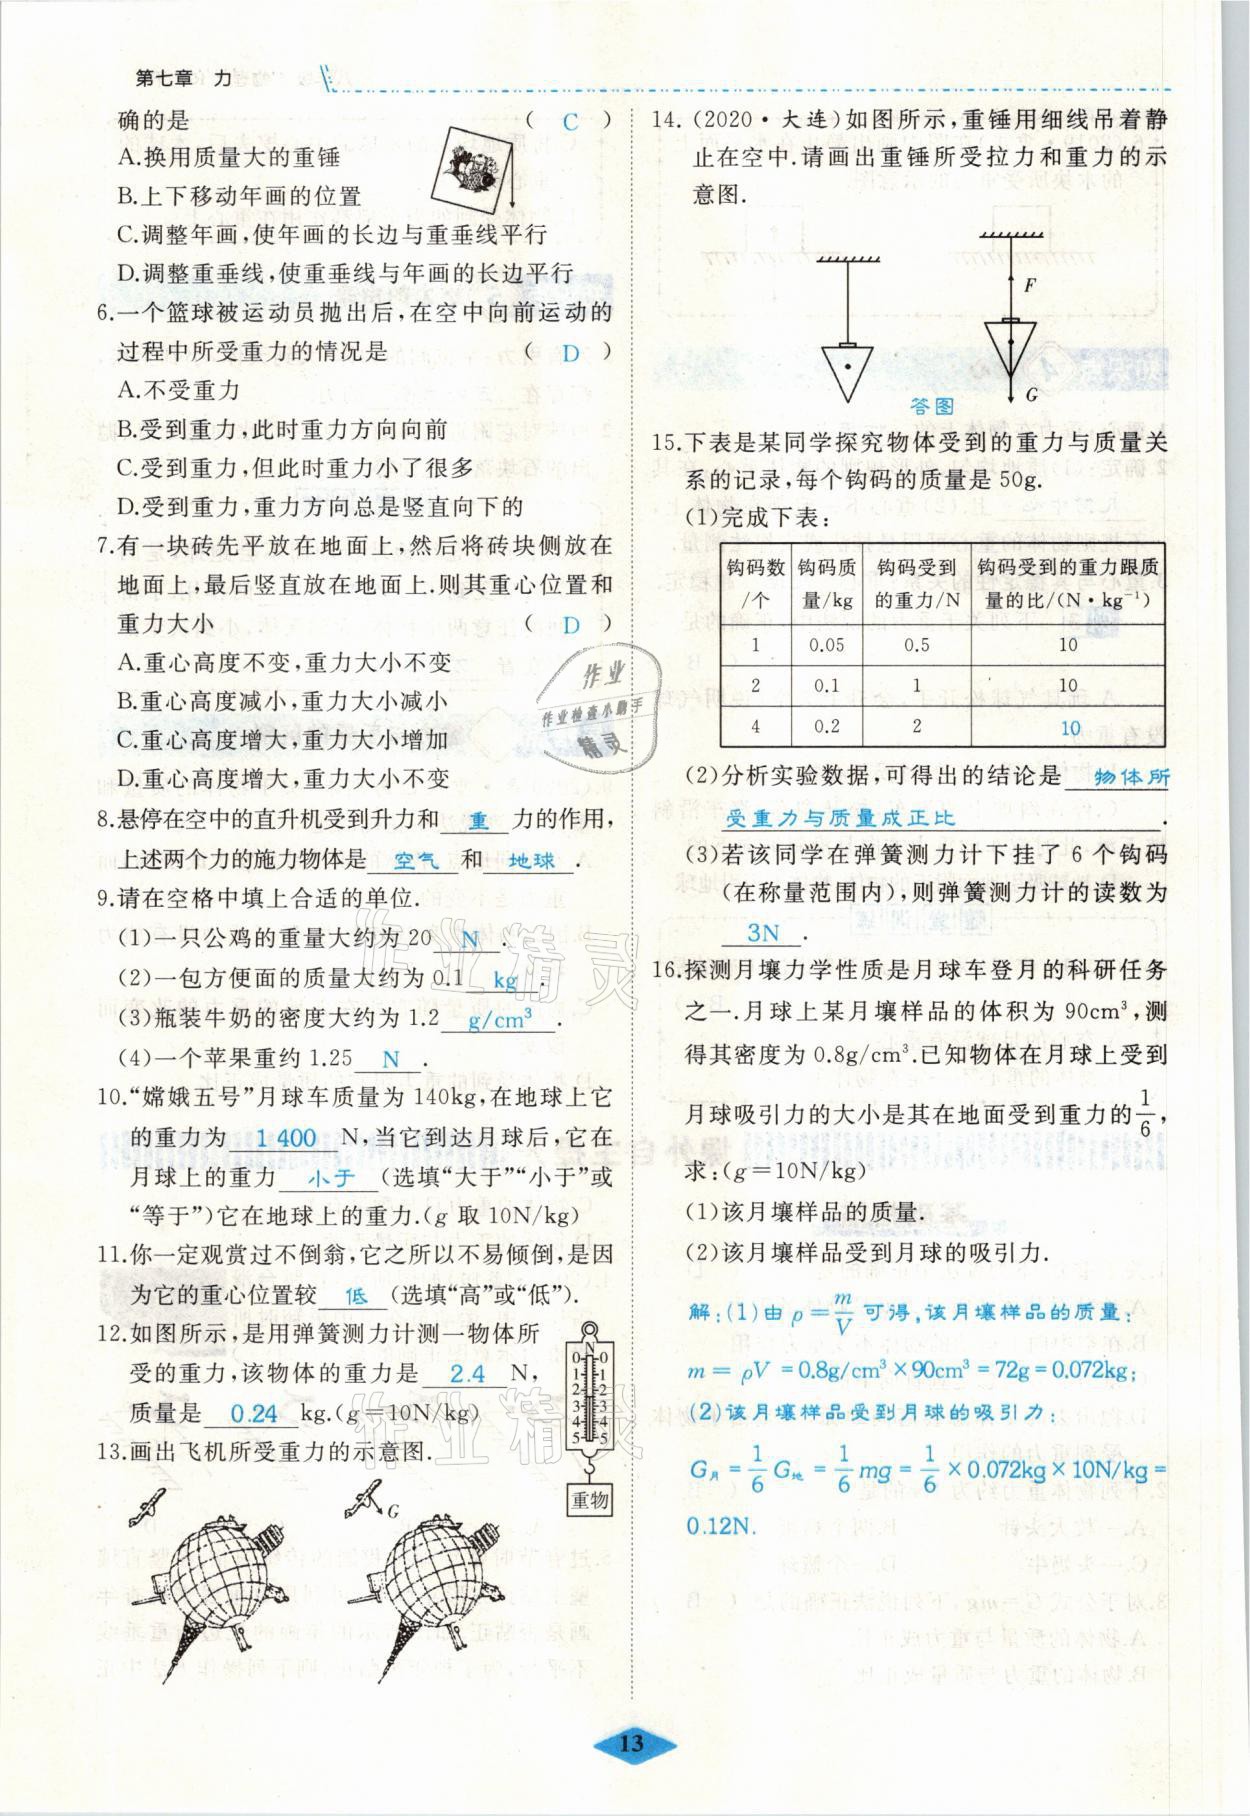 第七章 力
确的是 ( C )
A.换用质量大的重锤
B.上下移动年画的位置
C.调整年画,使年画的长边与重垂线平行
D.调整重垂线,使重垂线与年画的长边平行
6.一个篮球被运动员抛出后,在空中向前运动的
过程中所受重力的情况是 ( D )
A.不受重力
B.受到重力,此时重力方向向前
C.受到重力,但此时重力小了很多
D.受到重力,重力方向总是竖直向下的
7.有一块砖先平放在地面上,然后将砖块侧放在
地面上,最后竖直放在地面上.则其重心位置和
重力大小 ( D )
A.重心高度不变,重力大小不变
B.重心高度减小,重力大小减小
C.重心高度增大,重力大小增加
D.重心高度增大,重力大小不变
8.悬停在空中的直升机受到升力和 重 力的作用,
上述两个力的施力物体是 空气 和 地球 .
9.请在空格中填上合适的单位.
(1)一只公鸡的重量大约为 20 N .
(2)一包方便面的质量大约为 0.1 kg .
(3)瓶装牛奶的密度大约为 1.2 g/cm³ .
(4)一个苹果重约 1.25 N .
10.“嫦娥五号”月球车质量为 140kg,在地球上它
的重力为 1 400 N,当它到达月球后,它在
月球上的重力 小于 (选填“大于”“小于”或
“等于”)它在地球上的重力.(g 取 10N/kg)
11.你一定观赏过不倒翁,它之所以不易倾倒,是因
为它的重心位置较 低 (选填“高”或“低”).
12.如图所示,是用弹簧测力计测一物体所
受的重力,该物体的重力是 2.4 N,
质量是 0.24 kg.(g=10N/kg)
N
0 0
1 1
2 2
3 3
4 4
5 5
重物
13.画出飞机所受重力的示意图.
G
14.(2020·大连)如图所示,重锤用细线吊着静
止在空中.请画出重锤所受拉力和重力的示
意图.
F
G
答图
15.下表是某同学探究物体受到的重力与质量关
系的记录,每个钩码的质量是 50g.
(1)完成下表:
钩码数/个 钩码质量/kg 钩码受到的重力/N 钩码受到的重力跟质量的比/(N·kg⁻¹)
1 0.05 0.5 10
2 0.1 1 10
4 0.2 2 10
(2)分析实验数据,可得出的结论是 物体所
受重力与质量成正比 .
(3)若该同学在弹簧测力计下挂了 6 个钩码
(在称量范围内),则弹簧测力计的读数为
3N .
16.探测月壤力学性质是月球车登月的科研任务
之一.月球上某月壤样品的体积为 90cm³,测
得其密度为 0.8g/cm³.已知物体在月球上受到
月球吸引力的大小是其在地面受到重力的1/6,
求:(g=10N/kg)
(1)该月壤样品的质量.
(2)该月壤样品受到月球的吸引力.
解:(1)由 ρ=m/V 可得,该月壤样品的质量:
m=ρV=0.8g/cm³×90cm³=72g=0.072kg;
(2)该月壤样品受到月球的吸引力:
G月=1/6 G地=1/6 mg=1/6×0.072kg×10N/kg=
0.12N.
作业
作业检查小助手
精灵
作业精灵
作业精灵
13